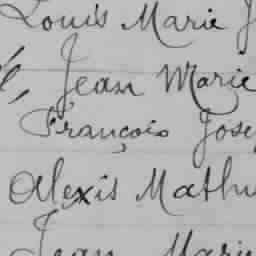 Louis Marie J
Jean Marie
François Jose
Alexis Mathu
Jean Marie